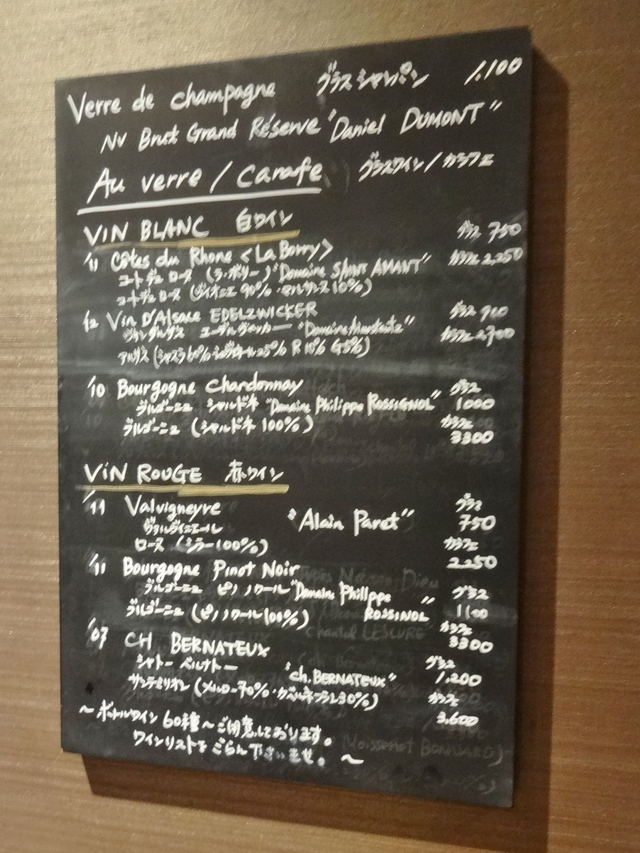 Verre de champagne グラスシャンパン 1,100
NV Brut Grand Réserve "Daniel DUMONT"
Au verre / Carafe グラスワイン / カラフェ
VIN BLANC 白ワイン グラス 750
'11 Côtes du Rhone <La Borry> カラフェ 2,250
コート デュ ローヌ (ラ・ボリー) "Domaine SAINT AMANT"
コートデュ ローヌ (ヴィオニエ 90% マルサンヌ 10%)
'12 Vin D'Alsace EDELZWICKER グラス 900
"Domaine カラフェ 2,700
アルザス 60% 25% R 10% G5%)
'10 Bourgogne Chardonnay グラス
ブルゴーニュ シャルドネ "Domaine Philippe ROSSIGNOL" 1000
ブルゴーニュ (シャルドネ 100%) カラフェ
3300
VIN ROUGE 赤ワイン
'11 Valvigneyre グラス
"Alain Paret" 750
ローヌ (シラー100%) カラフェ
2250
'11 Bourgogne Pinot Noir
ブルゴーニュ ピノノワール "Domaine Philippe グラス
ROSSINOL" 1100
ブルゴーニュ (ピノノワール100%) カラフェ
3300
'07 CH BERNATEUX グラス
シャトー ベルナトー "ch. BERNATEUX" 1,200
サンテミリオン (メルロー70%・カベルネフラン30%) カラフェ
3,600
～ボトルワイン60種～ご用意しております。
ワインリストをごらん下さいませ。～